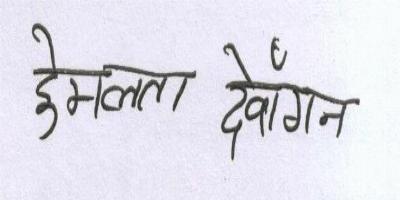 हेमलता देवाँगन